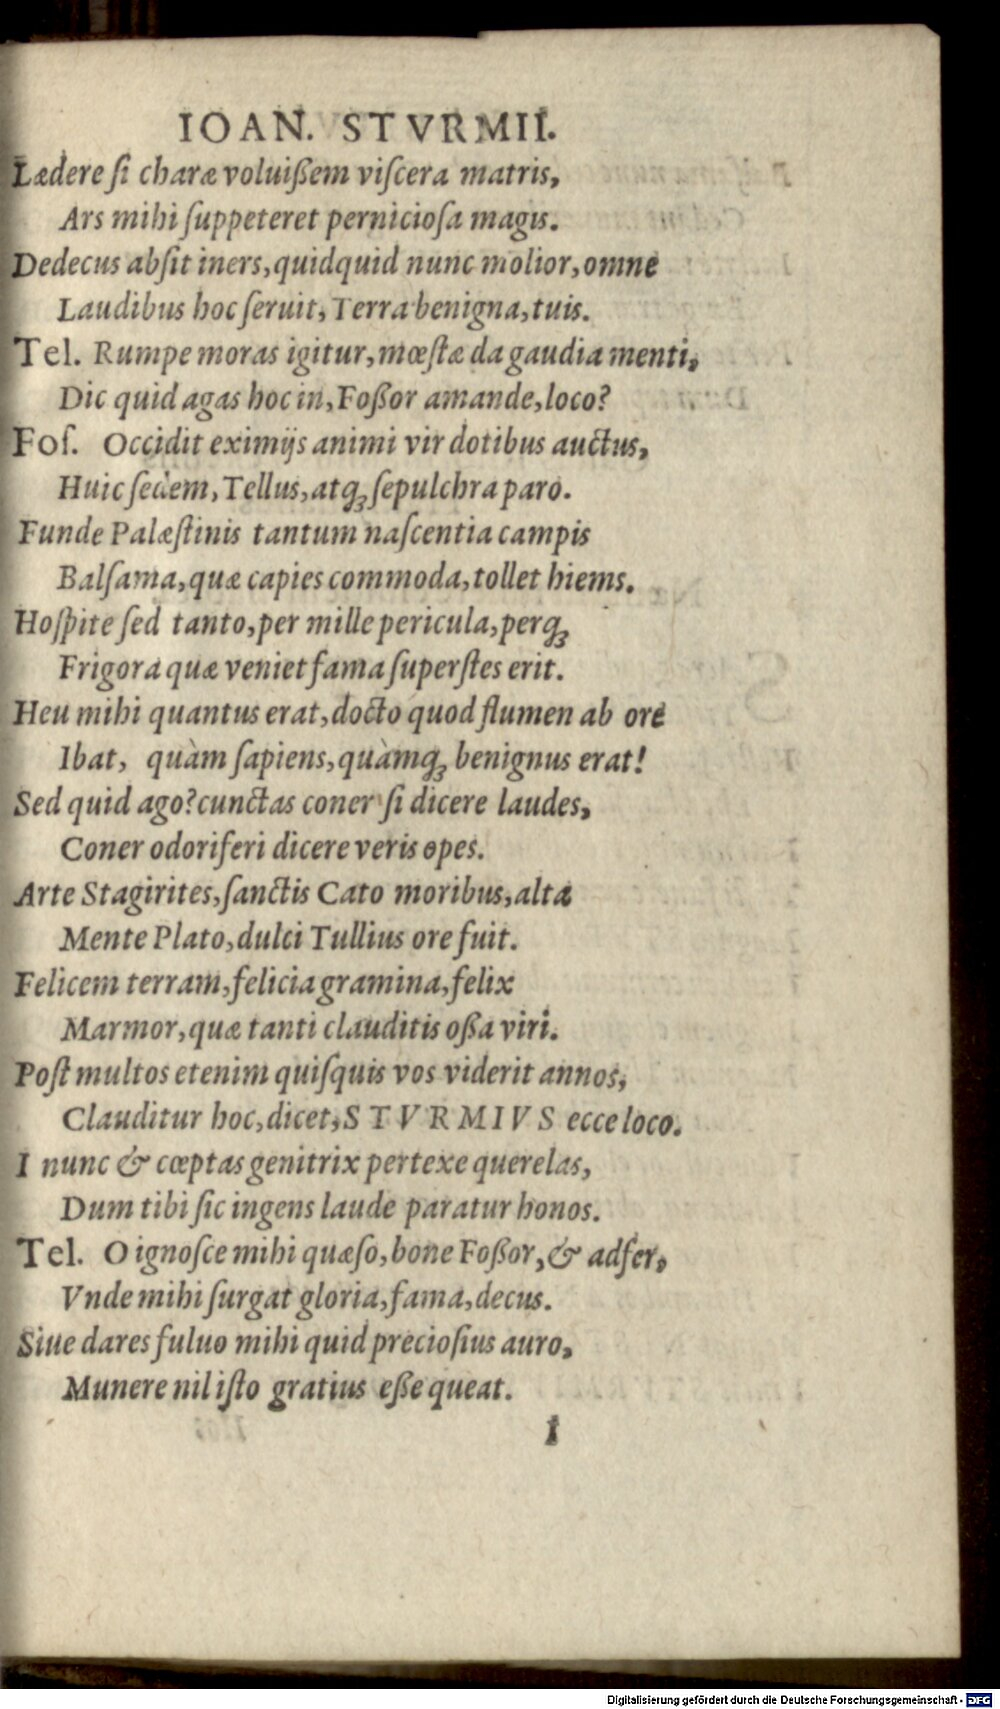 IOAN. STVRMII.
Lædere ſi charæ voluißem viſcera matris,
Ars mihi ſuppeteret pernicioſa magis.
Dedecus abſit iners, quidquid nunc molior, omne
Laudibus hoc ſeruit, Terra benigna, tuis.
Tel. Rumpe moras igitur, mœſtæ da gaudia menti,
Dic quid agas hoc in, Foßor amande, loco?
Foſ. Occidit eximijs animi vir dotibus auctus,
Huic ſedem, Tellus, atq́; ſepulchra paro.
Funde Palæſtinis tantum naſcentia campis
Balſama, quæ capies commoda, tollet hiems.
Hoſpite ſed tanto, per mille pericula, perq́;
Frigora quæ veniet fama ſuperſtes erit.
Heu mihi quantus erat, docto quod flumen ab ore
Ibat, quàm ſapiens, quàmq́; benignus erat!
Sed quid ago? cunctas coner ſi dicere laudes,
Coner odoriferi dicere veris opes.
Arte Stagirites, ſanctis Cato moribus, alta
Mente Plato, dulci Tullius ore fuit.
Felicem terram, felicia gramina, felix
Marmor, quæ tanti clauditis oßa viri.
Poſt multos etenim quiſquis vos viderit annos,
Clauditur hoc, dicet, STVRMIVS ecce loco.
I nunc & cœptas genitrix pertexe querelas,
Dum tibi ſic ingens laude paratur honos.
Tel. O ignoſce mihi quæſo, bone Foßor, & adfer,
Vnde mihi ſurgat gloria, fama, decus.
Siue dares fuluo mihi quid precioſius auro,
Munere nil iſto gratius eße queat.
I
Digitalisierung gefördert durch die Deutsche Forschungsgemeinschaft - DFG